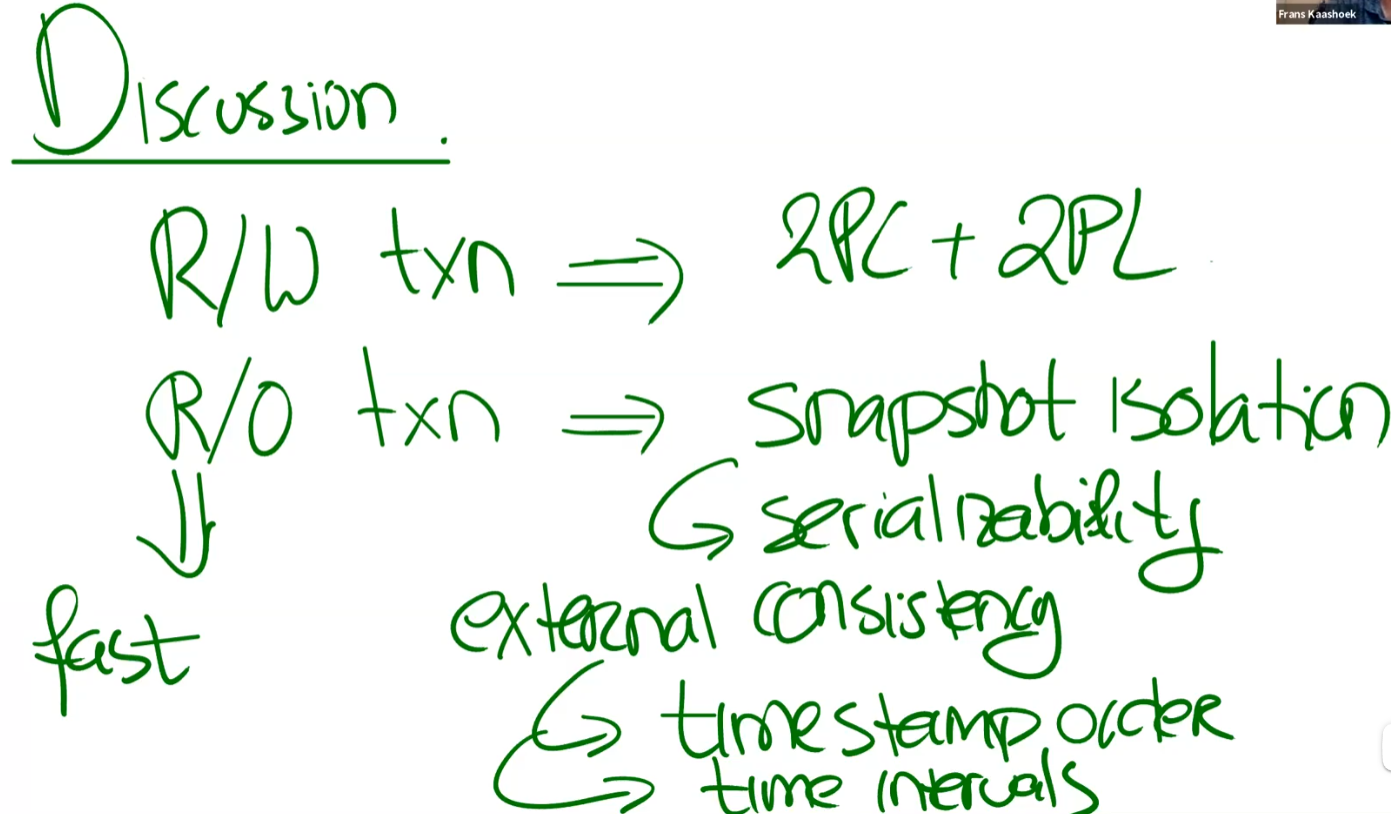 Frans Kaashoek
Discussion.
R/W txn ⇒ 2PC + 2PL
R/O txn ⇒ snapshot isolation
↳ serializability
⇓
fast
external consistency
↳ timestamp order
↳ time intervals